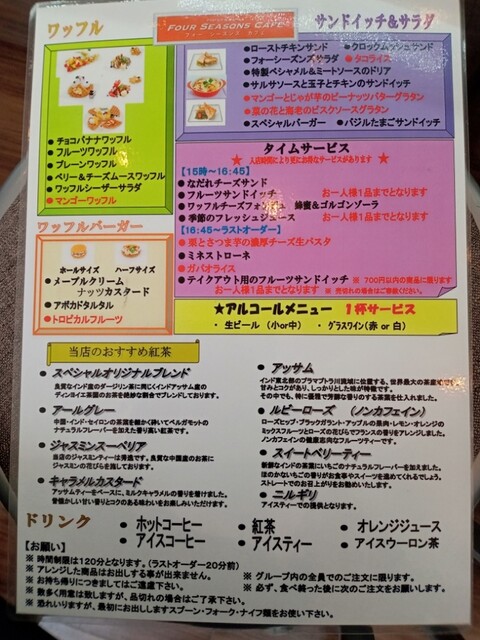 ワッフル
FOUR SEASONS CAFE
フォー シーズンズ カフェ
サンドイッチ&サラダ
● チョコバナナワッフル
● フルーツワッフル
● プレーンワッフル
● ベリー&チーズムースワッフル
● ワッフルシーザーサラダ
● マンゴーワッフル
● ローストチキンサンド ● クロックムッシュサンド
● フォーシーズンズサラダ ● タコライス
● 特製ベシャメル&ミートソースのドリア
● サルサソースと玉子とチキンのサンドイッチ
● マンゴーとじゃが芋のピーナッツバターグラタン
● 菜の花と海老のビスクソースグラタン
● スペシャルバーガー ● バジルたまごサンドイッチ
タイムサービス
★ 入店時間により更にお得なサービスがあります ★
【15時~16:45】
● なだれチーズサンド
● フルーツサンドイッチ お一人様1品までとなります
● ワッフルチーズフォンデュ 蜂蜜&ゴルゴンゾーラ
● 季節のフレッシュジュース お一人様1品までとなります
【16:45~ラストオーダー】
● 栗とさつま芋の濃厚チーズ生パスタ
● ミネストローネ
● ガパオライス
● テイクアウト用のフルーツサンドイッチ ※ 700円以内の商品に限ります
お一人様1品までとなります ※ 売切れの場合はご容赦ください。
ワッフルバーガー
ホールサイズ ハーフサイズ
● メープルクリーム
ナッツカスタード
● アボカドタルタル
● トロピカルフルーツ
★アルコールメニュー 1杯サービス
・ 生ビール (小or中) ・ グラスワイン(赤 or 白)
当店のおすすめ紅茶
● スペシャルオリジナルブレンド
良質なインド産のダージリン茶に同じくインドアッサム産の
ディンヨイエ茶園のお茶を絶妙な割合でブレンドしております。
● アールグレー
中国・インド・セイロンの茶葉を細かく砕いてベルガモットの
ナチュラルフレーバーを加えた香り高い紅茶です。
● ジャスミンスーペリア
当店のジャスミンティーは秀逸です。良質な中国産のお茶に
ジャスミンの花びらを施しております。
● キャラメルカスタード
アッサムティーをベースに、ミルクキャラメルの香りを着けました。
昔懐かしい甘い香りとコクのある味わいをお楽しみいただけます。
● アッサム
インド東北部のブラマプトラ川流域に位置する、世界最大の茶産地です
甘みとコクがあり、しっかりとした味が特徴です。
その中でも、特に優雅で芳醇な香りのする茶葉を仕入れました。
● ルビーローズ (ノンカフェイン)
ローズヒップ・ブラックガラント・アップルの果肉・レモン・オレンジの
ミックスフルーツとローズの花びらでフランスの香りをアレンジしました。
ノンカフェインの健康志向なフルーツティーです。
● スイートベリーティー
新鮮なインドの茶葉にいちごのナチュラルフレーバーを加えました。
ほのかないちごの香りがお食事やスイーツを進めてくれるでしょう。
ストレートでのお召上がりをお勧めいたします。
● ニルギリ
アイスティーでの提供となります。
ドリンク
● ホットコーヒー ● 紅茶 ● オレンジジュース
● アイスコーヒー ● アイスティー ● アイスウーロン茶
【お願い】
※ 時間制限は120分となります。(ラストオーダー20分前)
※ アレンジした商品はお出しする事が出来ません。
※ お持ち帰りにつきましてはご遠慮下さい。
※ 数多く用意は致しますが、品切れの場合はご了承下さい。
※ 恐れいりますが、最初にお出ししますスプーン・フォーク・ナイフ類をお使い下さい。
※ グループ内の全員でのご注文に限ります。
※ 必ず、食べ終った後に次のご注文をお願いします。